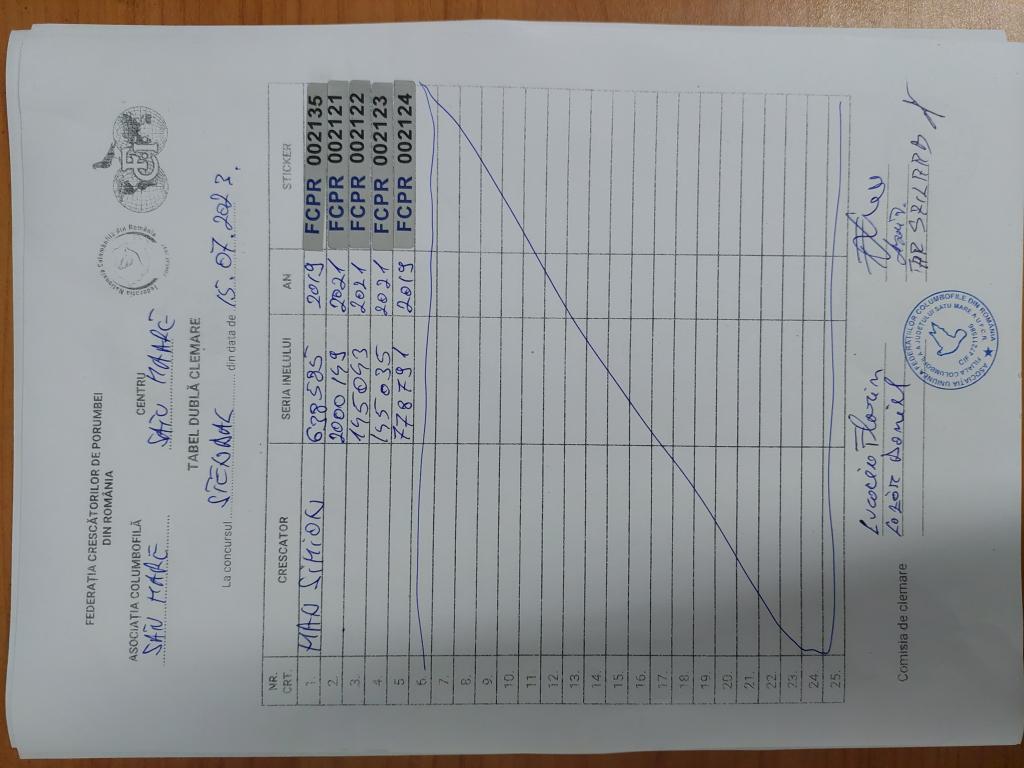 FEDERAȚIA CRESCĂTORILOR DE PORUMBEI
DIN ROMÂNIA
ASOCIAȚIA COLUMBOFILĂ
SATU MARE
CENTRU
SATU MARE
Federația Națională Columbofilă din România
TABEL DUBLĂ CLEMARE
La concursul STENDAL din data de 15.07.2023.
NR. CRT. CRESCATOR SERIA INELULUI AN STICKER
1. MAN SIMION 638585 2019 FCPR 002135
2. 2000149 2021 FCPR 002121
3. 145043 2021 FCPR 002122
4. 145035 2021 FCPR 002123
5 778791 2019 FCPR 002124
6.
7.
8.
9.
10.
11.
12.
13.
14.
15.
16.
17.
18.
19.
20.
21.
22.
23.
24.
25.
Comisia de clemare
Florin
Daniel
ASOCIAȚIA UNIUNEA FEDERAȚIILOR COLUMBOFILE DIN ROMÂNIA
FILIALA COLUMBOFILĂ A JUDEȚULUI SATU MARE A U.F.C.R.
CIF 47211986